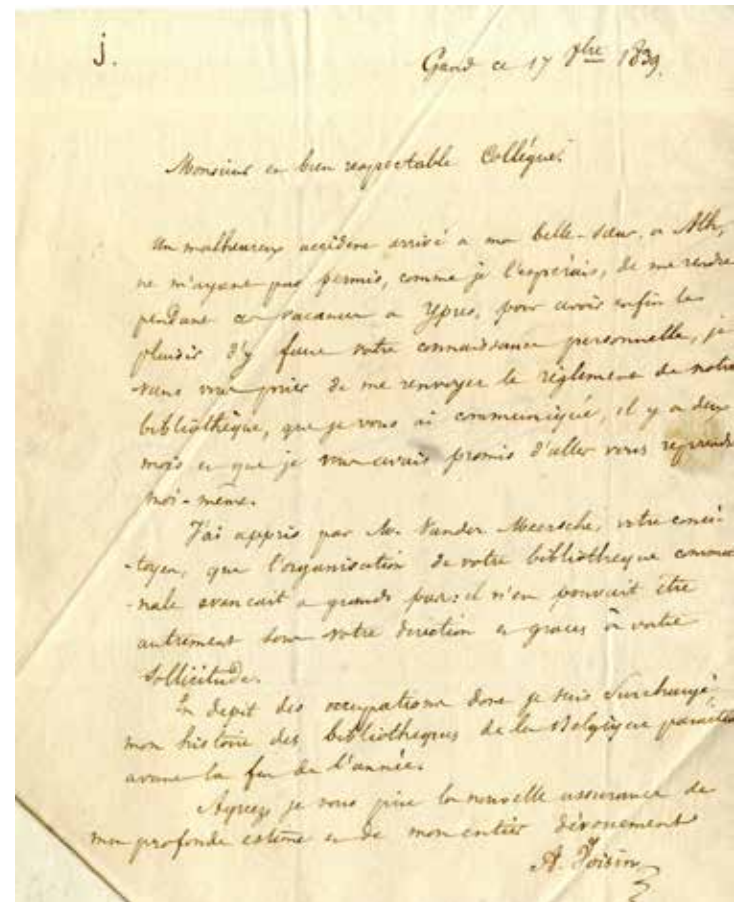 j.
Gand ce 17 8bre 1839.
Monsieur et bien respectable Collégue.
Un malheureux accident arrivé a ma belle-sœur, a Ath,
ne m'ayant pas permis, comme je l'espérais, de me rendre
pendant ces vacances a Ypres, pour avoir enfin le
plaisir d'y faire votre connaissance personnelle, je
vous prier de me renvoyer le réglement de notre
bibliothèque, que je vous ai communiqué, il y a deux
mois et que je vous avais promis d'aller vous reprendre
moi-meme.
J'ai appris par Mr. Vander Meersche, votre conci-
-toyen, que l'organisation de votre bibliotheque commu
-nale avancait a grands pas: il n'en pouvait être
autrement sous votre direction et graces à votre
sollicitude.
En depit des occupations dont je suis surchargé,
mon histoire des bibliotheques de la Belgique paraitra
avant la fin de l'année.
Agreez je vous prie la nouvelle assurance de
ma profonde estime et de mon entier dévouement
A. Voisin